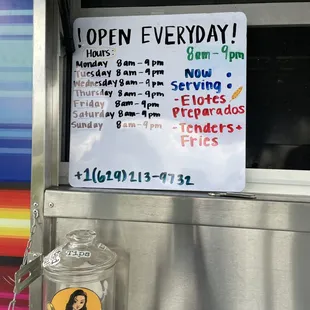 ¡OPEN EVERYDAY!
Hours: 8am-9pm
Monday 8am-9pm
Tuesday 8am-9pm
Wednesday 8am-9pm
Thursday 8am-9pm
Friday 8am-9pm
Saturday 8am-9pm
Sunday 8am-9pm
Now
Serving:
-Elotes
Preparados
-Tenders+
Fries
+1(629)213-9732
Tips